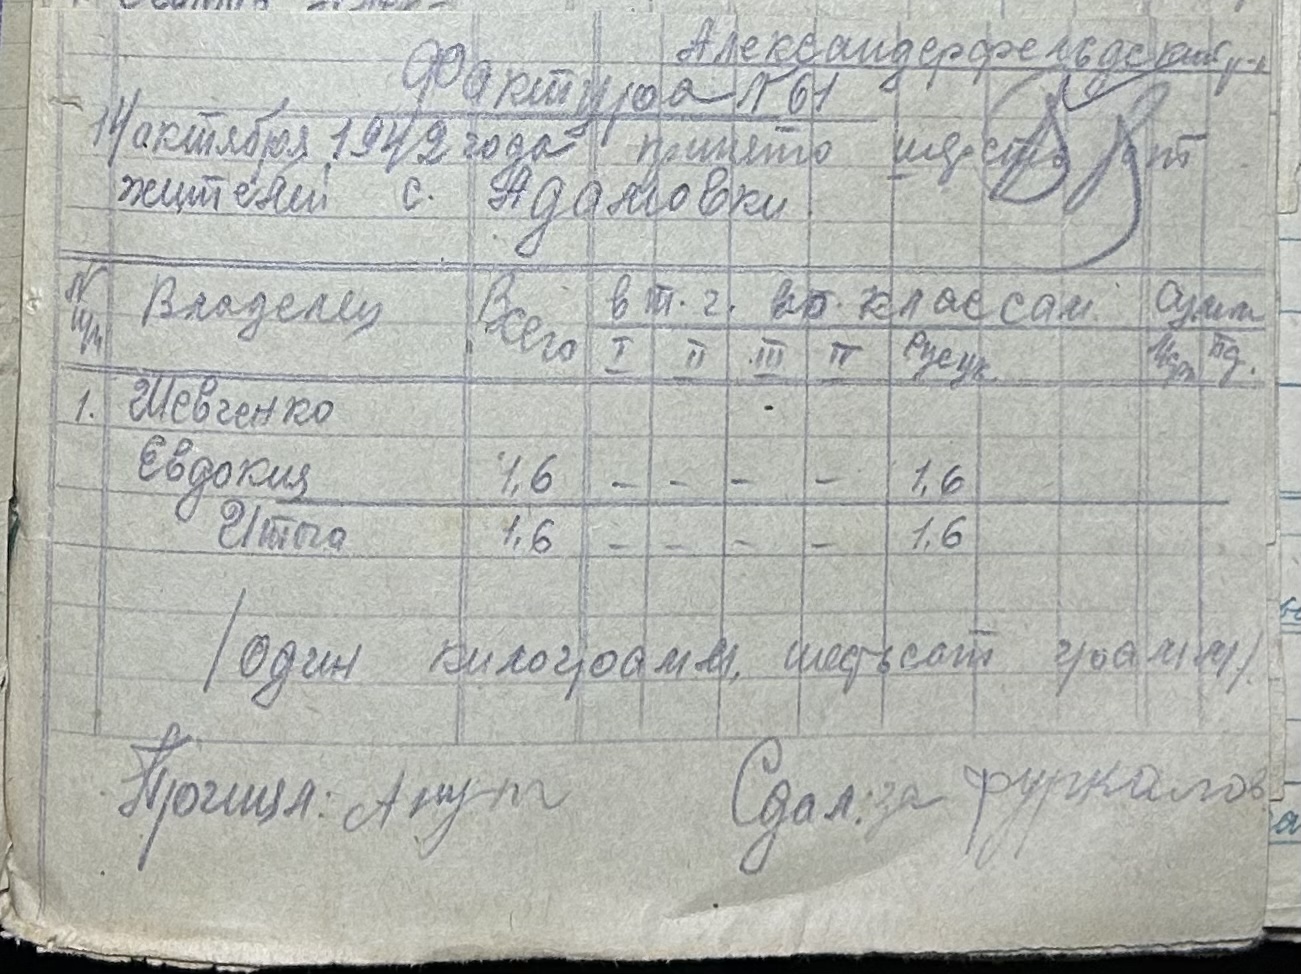 Александерфельдский р-н
Фактура № 61
14 актября 1942 года принято шерсть от
жителей с. Адамовки
N Владелец Всего в т. ч. по классам Сумма
п/п I II III IV Русск.
1. Шевченко
Евдокия 1,6 - - - - 1,6
Итога 1,6 - - - - 1,6
/один килограмм, шестьсот грамм/.
Сдал: за